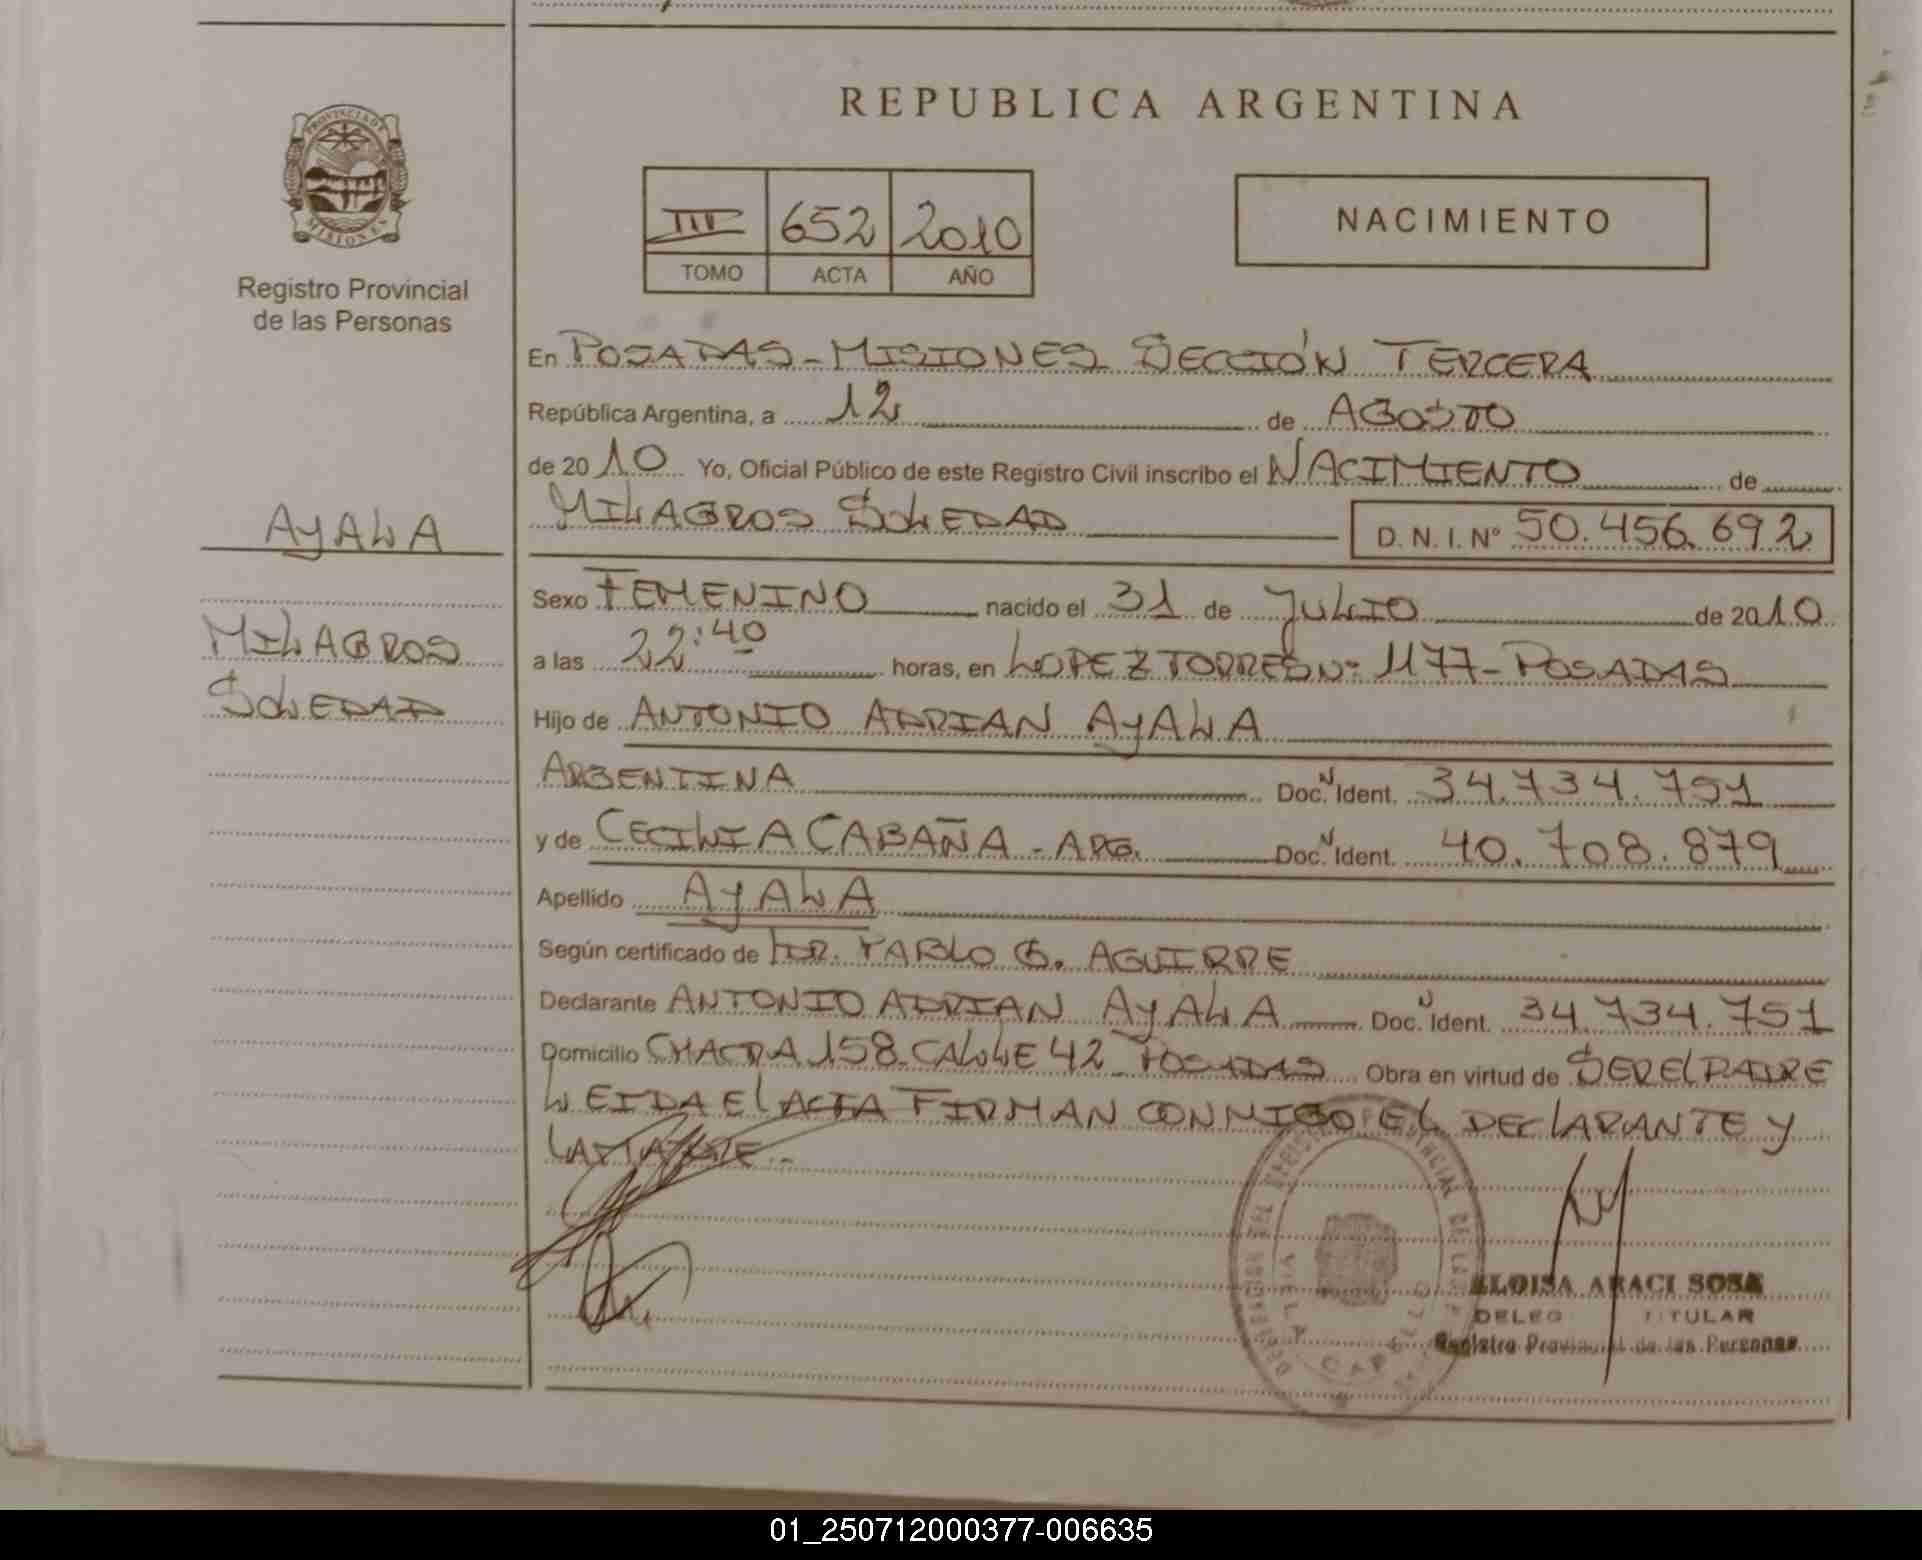 REPUBLICA ARGENTINA
PROVINCIA DE
MISIONES
Registro Provincial
de las Personas
III 652 2010
TOMO ACTA AÑO
NACIMIENTO
En POSADAS-MISIONES SECCIÓN TERCERA
República Argentina, a 12 de AGOSTO
de 2010 Yo, Oficial Público de este Registro Civil inscribo el NACIMIENTO de
MILAGROS SOLEDAD D. N. I. Nº 50.456.692
AYALA
MILAGROS
SOLEDAD
Sexo FEMENINO nacido el 31 de JULIO de 2010
a las 22:40 horas, en LOPEZ TORRES Nº 1177-POSADAS
Hijo de ANTONIO ADRIAN AYALA
ARGENTINA Doc. N Ident. 34.734.751
y de CECILIA CABAÑA - ARG. Doc. N Ident. 40.708.879
Apellido AYALA
Según certificado de DR. PABLO G. AGUIRRE
Declarante ANTONIO ADRIAN AYALA Doc. N Ident. 34.734.751
Domicilio CHACRA 158 CALLE 42 POSADAS Obra en virtud de SER El PADRE
LEIDA El ACTA FIRMAN CONMIGO EL DEClARANTE Y
LA MADRE.-
ELOISA ARACI SOSA
DELEG TITULAR
Registro Provincial de las Personas
VILLA CABELLO
01_250712000377-006635